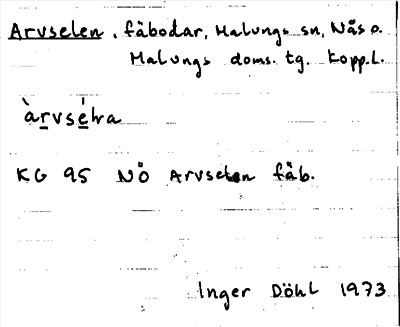 Arvselen, fäbodar, Malungs sn, Näs o.
Malungs doms. tg. Kopp.L.
àrvsélna
KG 95 NÖ Arvselen fäb.
Inger Döhl 1973